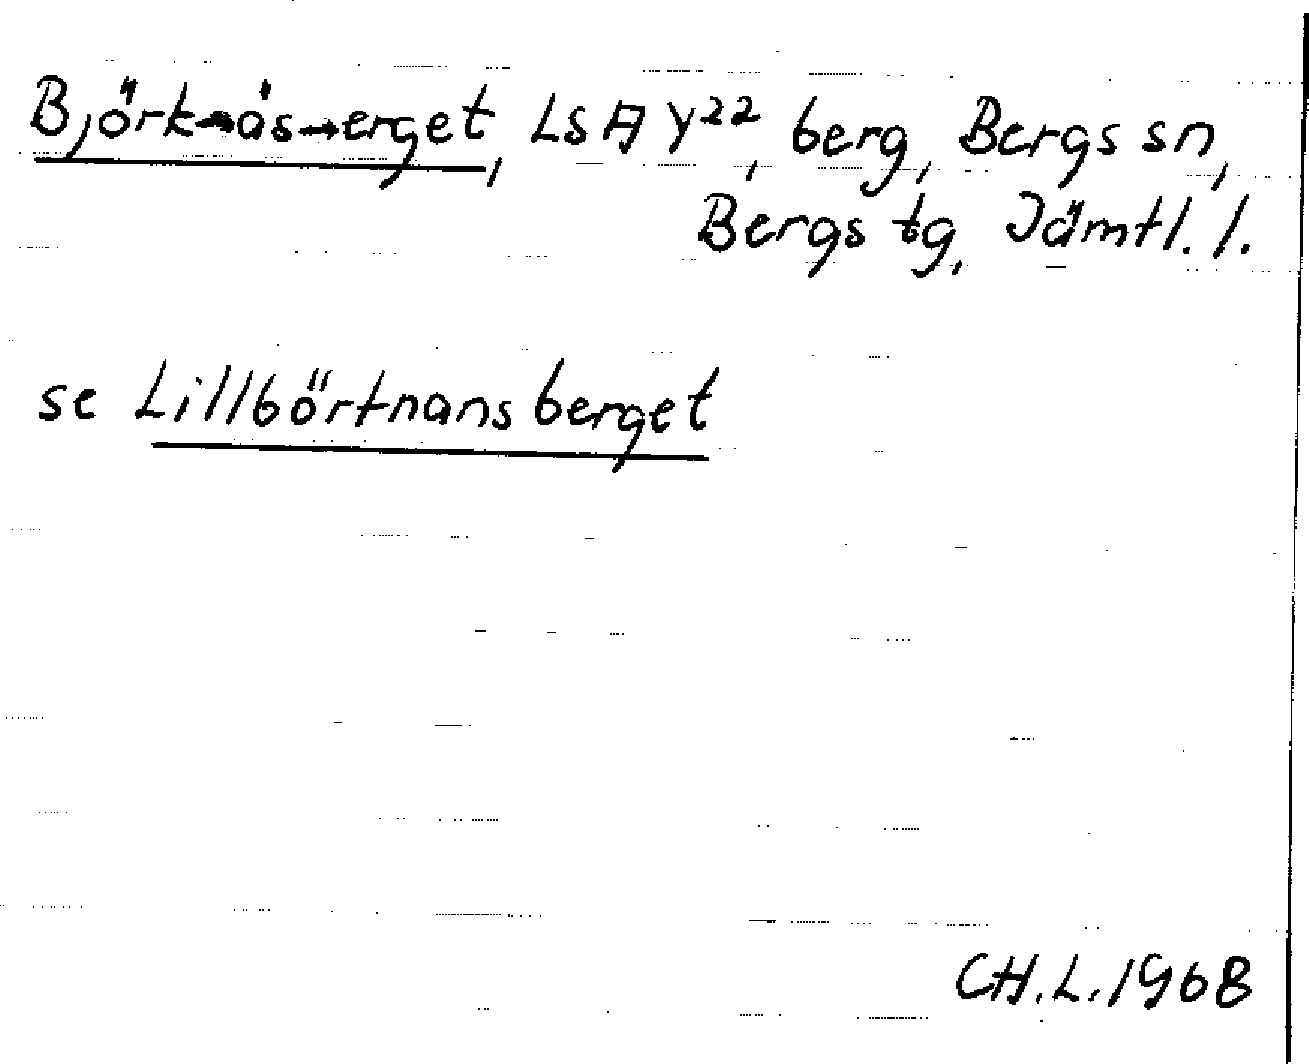 Björk-ås-erget, LSA Y22, berg, Bergs sn,
Bergs tg, Jämtl. l.
se Lillbörtnansberget
CH.L. 1968